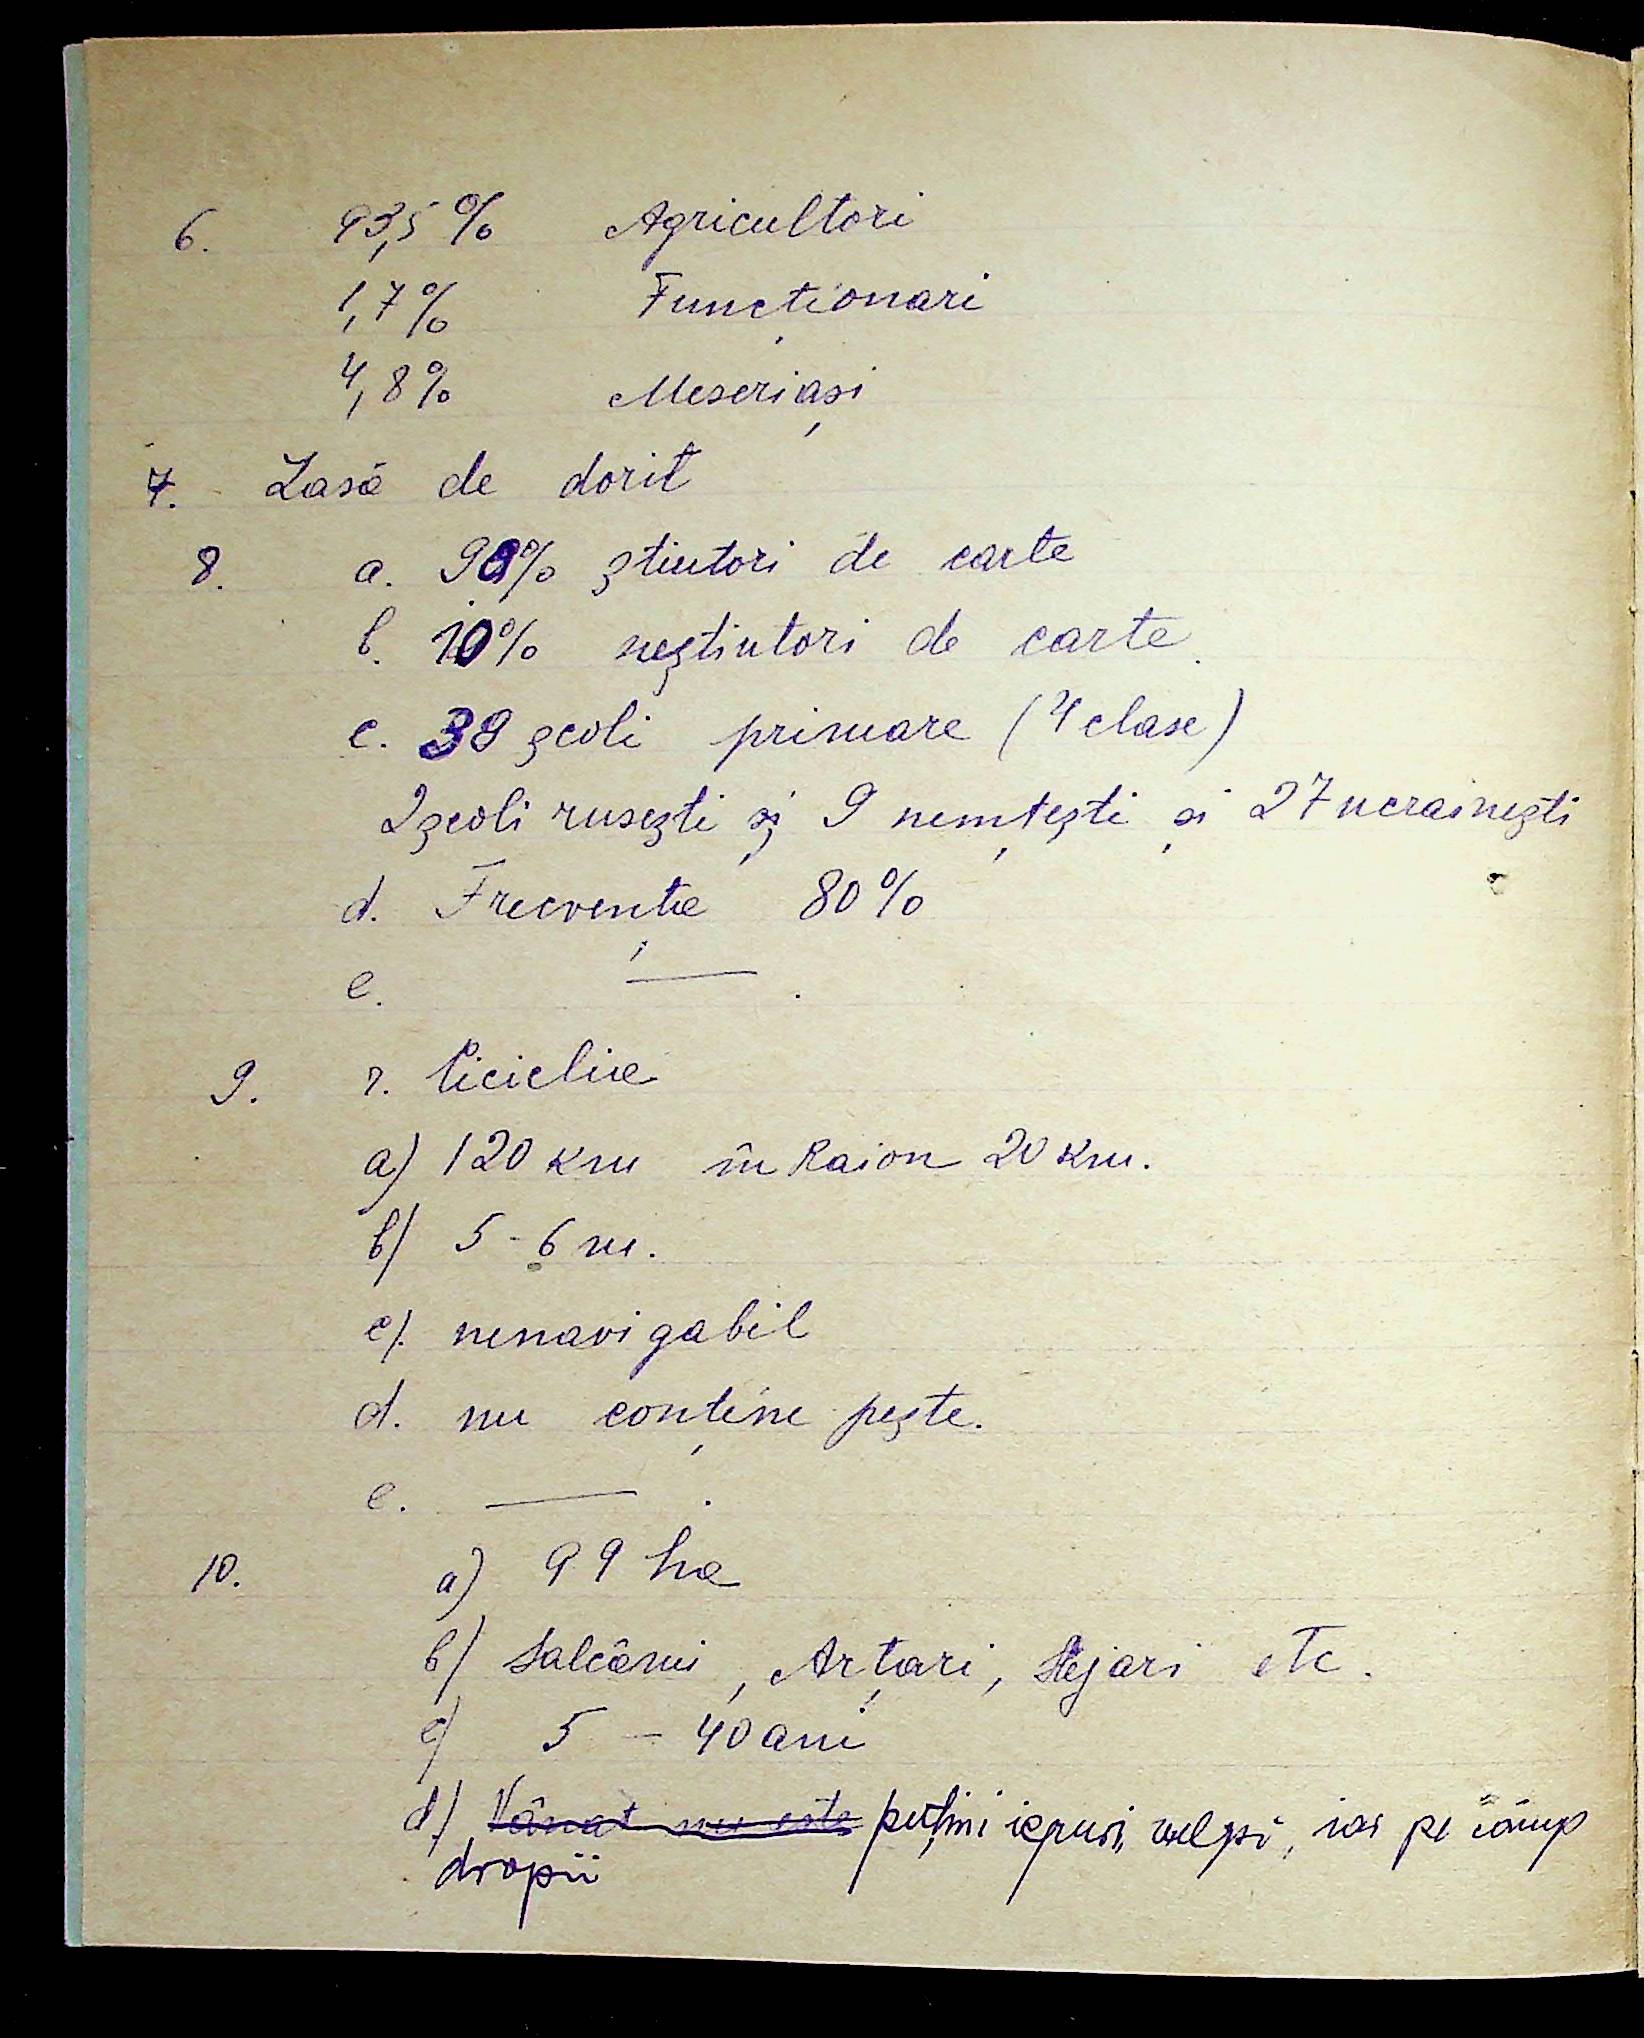 6. 93,5% Agricultori
1,7% Funcționari
4,8% Meseriași
7. Lasă de dorit
8. a. 90% știutori de carte
b. 10% neștiutori de carte.
c. 38 școli primare (4 clase)
2 școli rusești și 9 nemțești și 27 ucrainești
d. Frecvența 80%
e. —.
9. r. Ciciclia
a) 120 km în Raion 20 km.
b) 5-6 m.
c). nenavigabil
d. nu conține pește.
e. —.
10. a) 99 ha
b) Salcâmi, Arțari, Stejari etc.
c) 5 – 40 ani
d) Vânat nu este puțini iepuri, vulpi, iar pe câmp
dropii